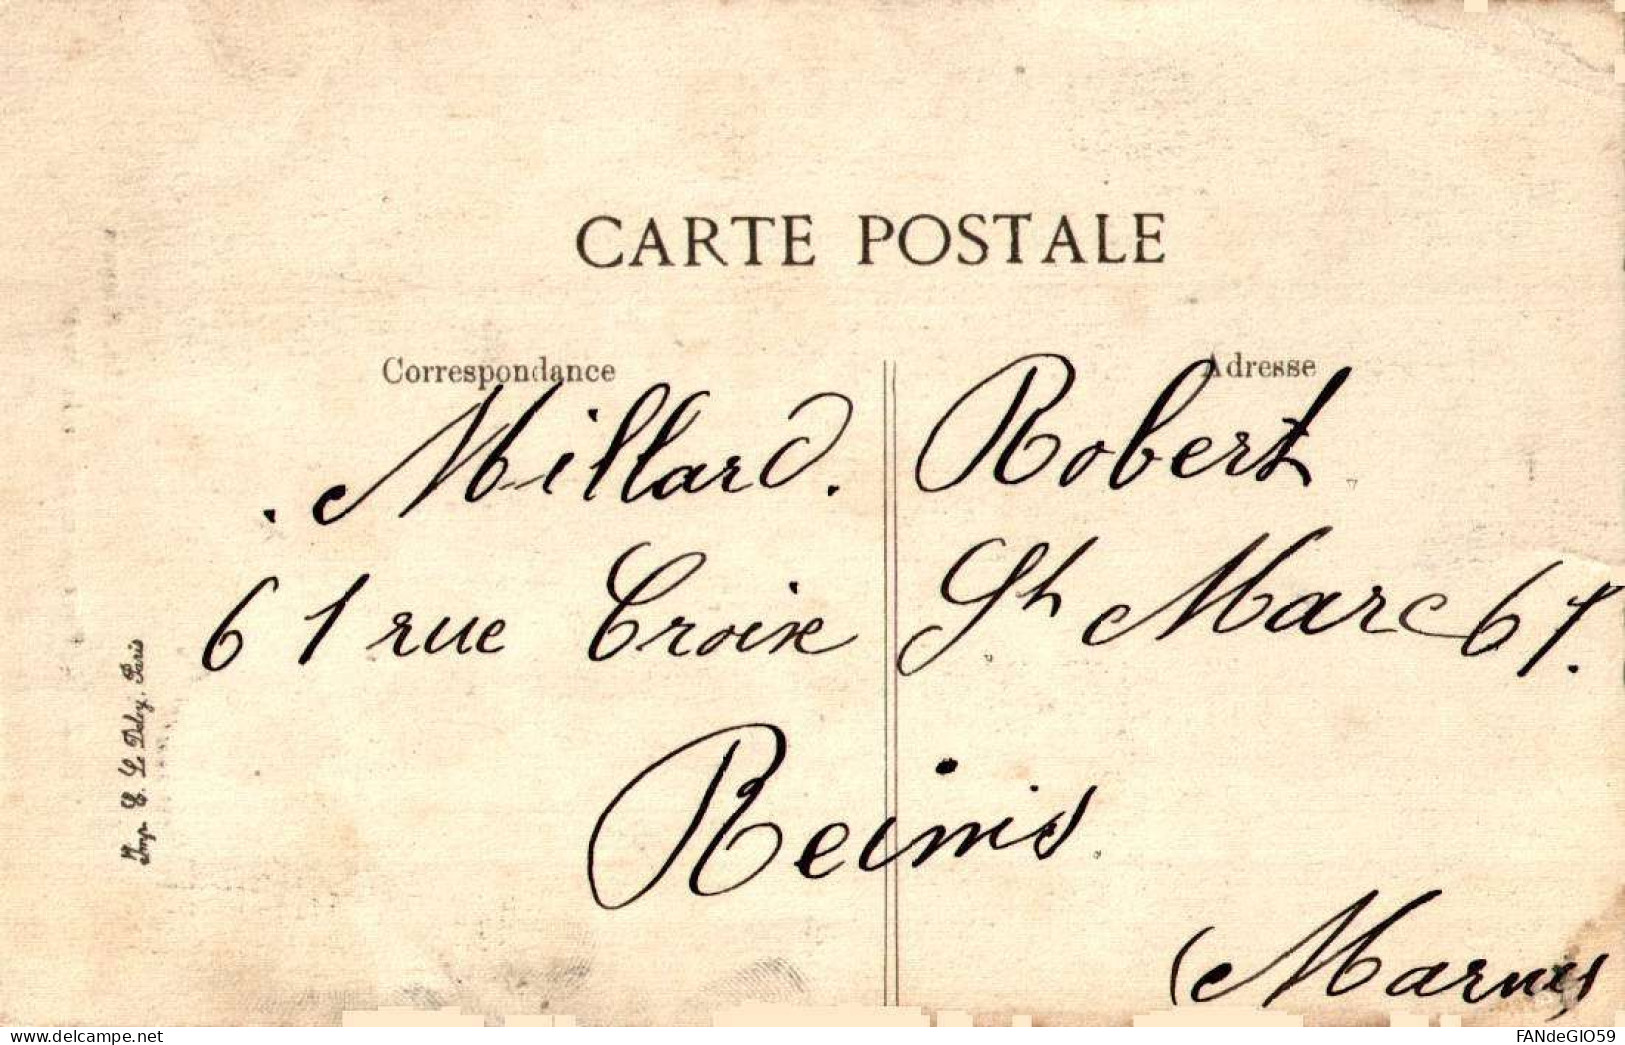 CARTE POSTALE
Correspondance
Adresse
Millard. Robert
61 rue Croix St Marc 61.
Reims
(Marne)
Imp. E. Le Deley, Paris
www.delcampe.net
FANdeGIO59